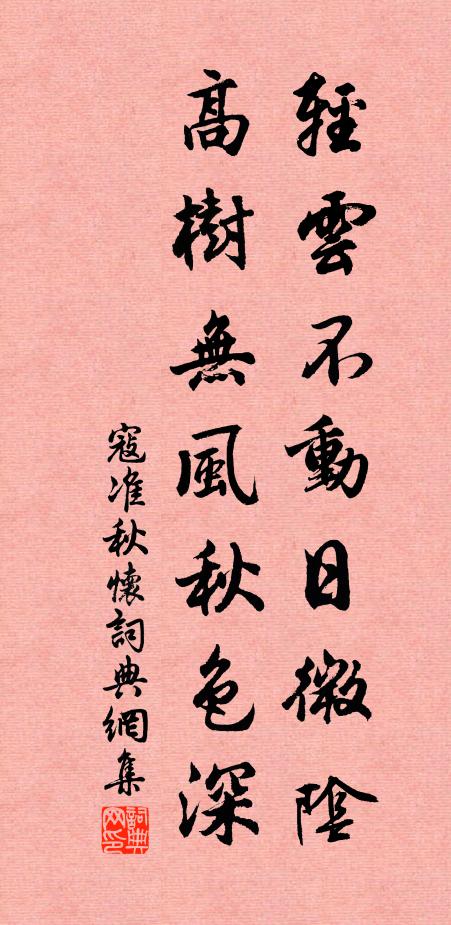 輕雲不動日微陰
高樹無風秋色深
寇准秋懷詞典網集
詞典网印